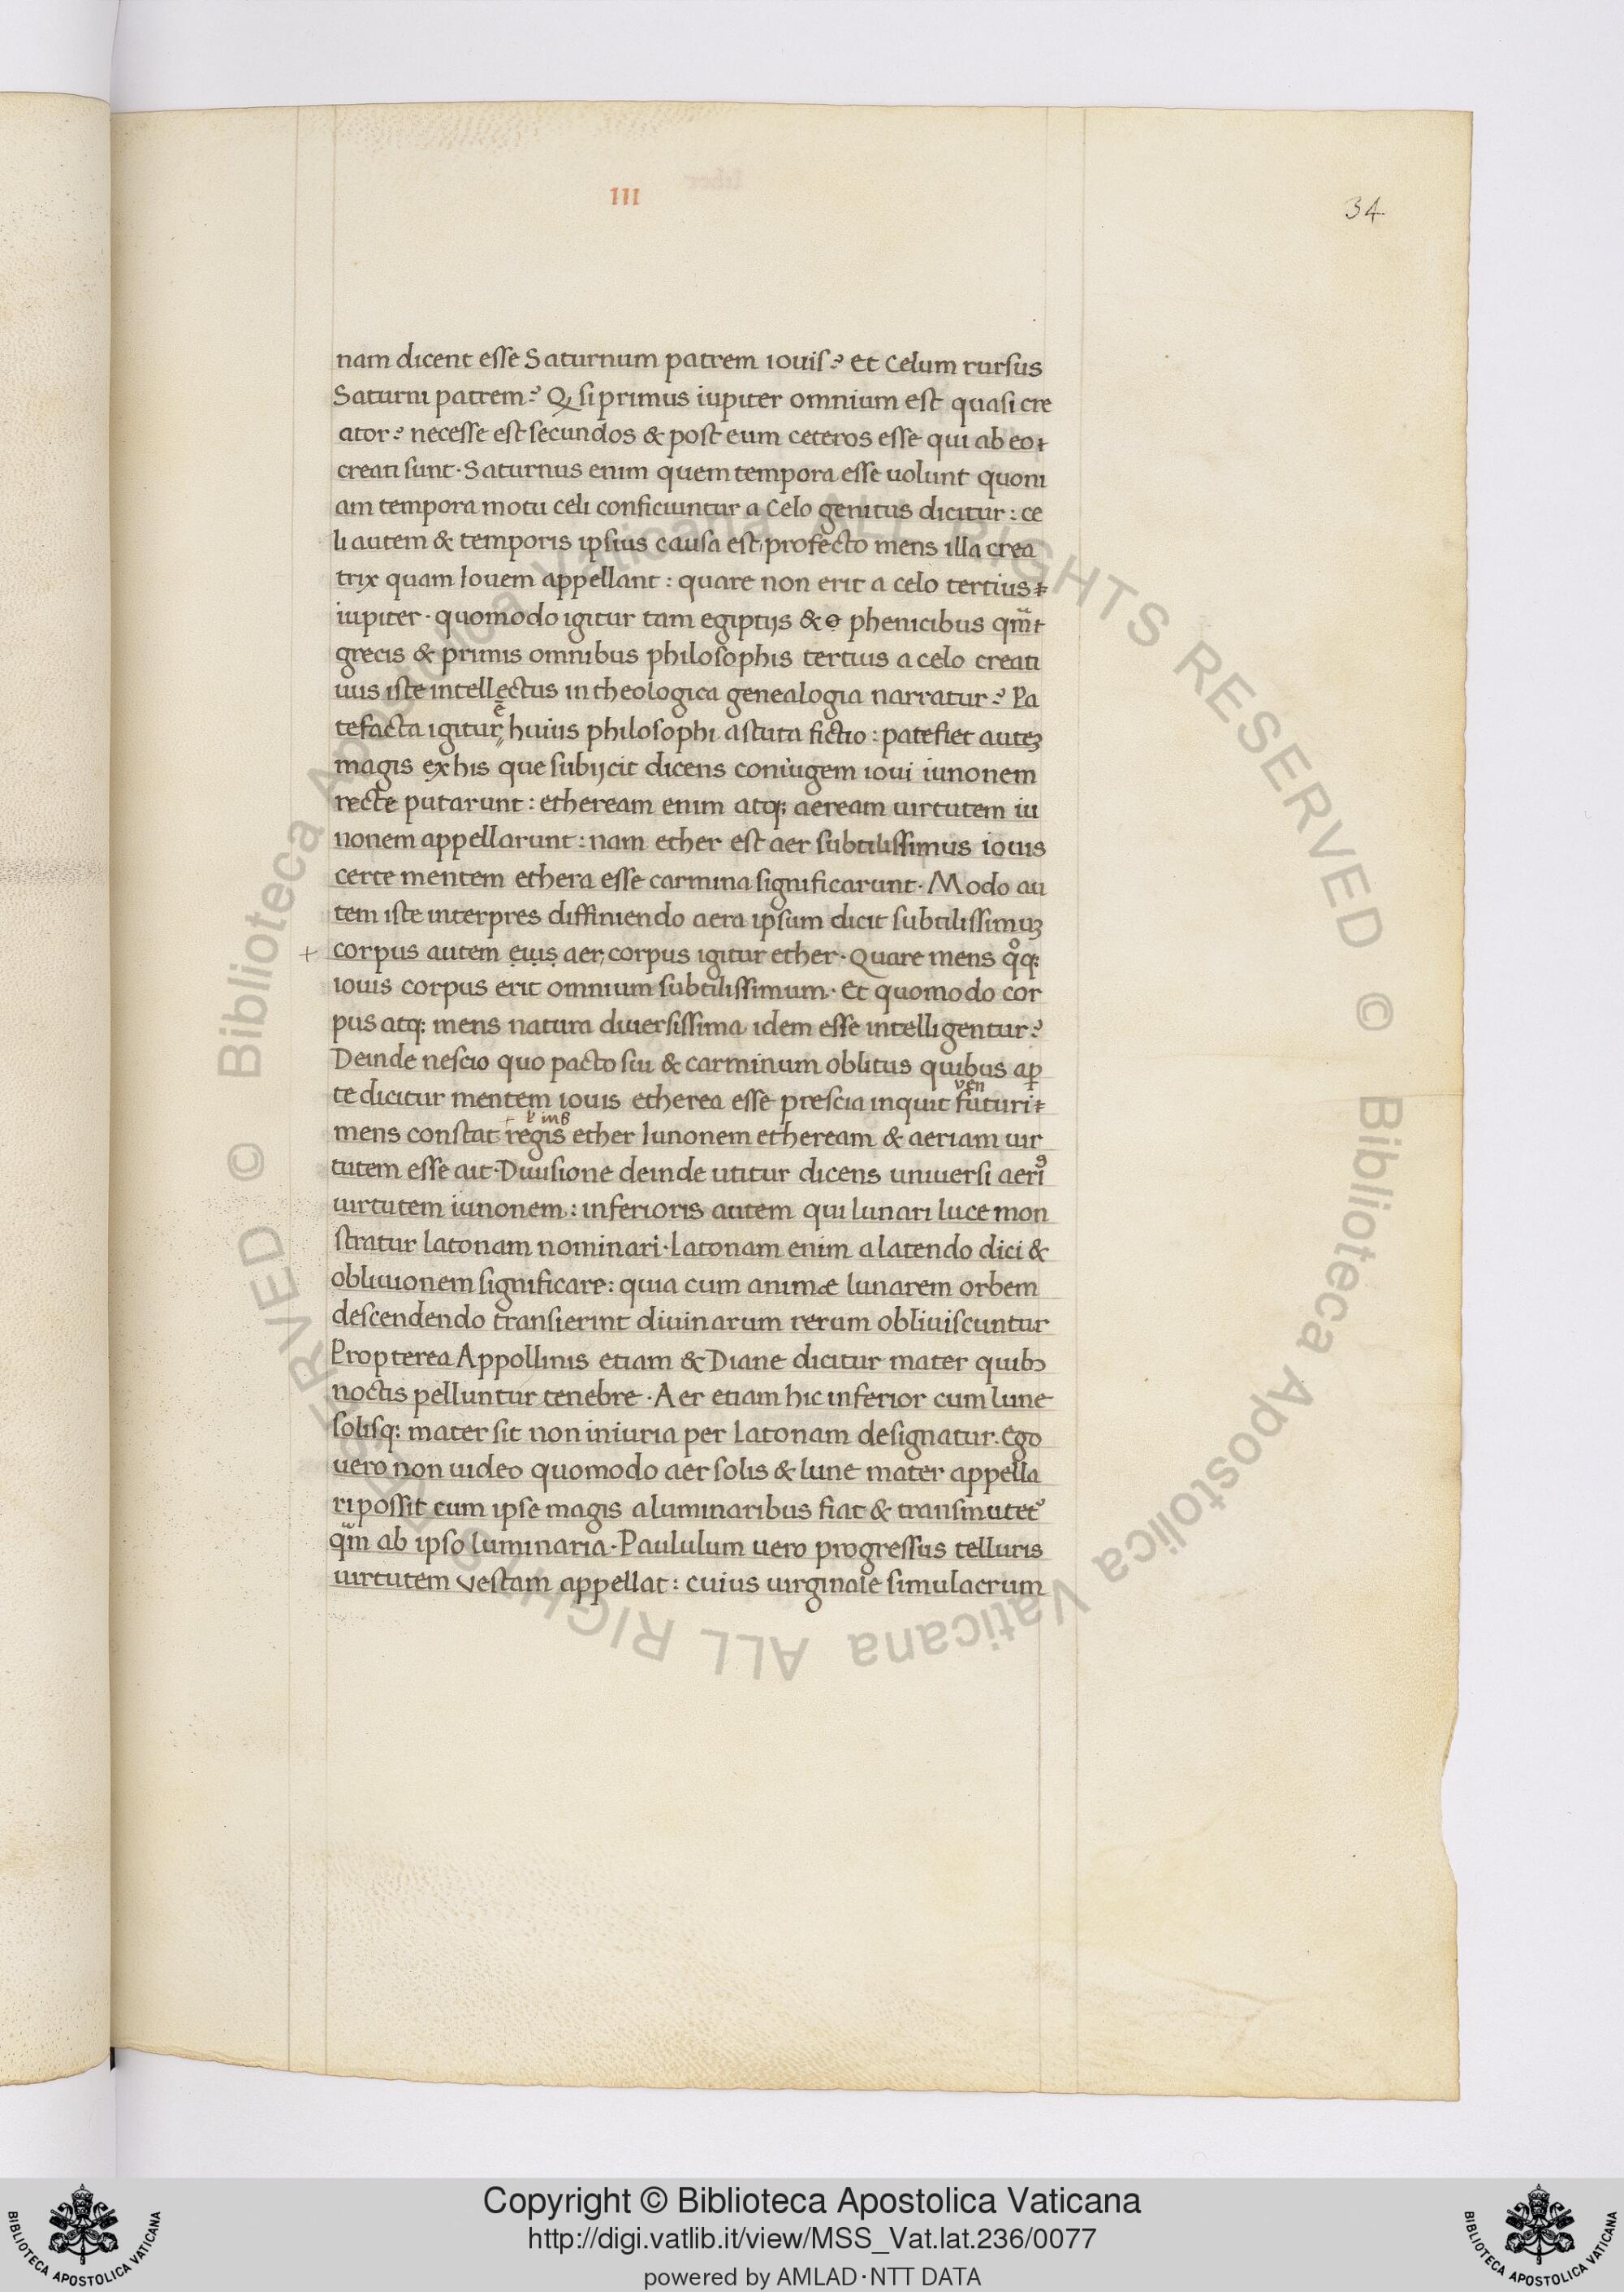 III
34
nam dicent esse Saturnum patrem iouis? et Celum rursus
Saturni patrem? Q si primus iupiter omnium est quasi cre
ator? necesse est secundos & post eum ceteros esse qui ab eo
creati sunt. Saturnus enim quem tempora esse uolunt quoni
am tempora motu celi conficiuntur a Celo genitus dicitur: ce
li autem & temporis ipsius causa est, profecto mens illa crea
trix quam Iouem appellant: quare non erit a celo tertius
iupiter. quomodo igitur tam egiptijs & phenicibus qm̃
grecis & primis omnibus philosophis tertius a celo creati
uus iste intellectus in theologica genealogia narratur? Pa
tefacta igitur ē huius philosophi astuta fictio: patefiet auteʒ
magis ex his que subijcit dicens coniugem ioui iunonem
recte putarunt: etheream enim atq; aeream uirtutem iu
nonem appellarunt: nam ether est aer subtilissimus iouis
certe mentem ethera esse carmina significarunt. Modo au
tem iste interpres diffiniendo aera ipsum dicit subtilissimuʒ
+ corpus autem eius aer, corpus igitur ether. Quare mens qoq;
iouis corpus erit omnium subtilissimum. Et quomodo cor
pus atq; mens natura diuersissima idem esse intelligentur?
Deinde nescio quo pacto sui & carminum oblitus quibus ap̱
ven
te dicitur mentem iouis etherea esse prescia inquit futuri
mens constat regis ether Iunonem etheream & aeriam uir
tutem esse ait. Diuisione deinde utitur dicens uniuersi aeriꝰ
uirtutem iunonem: inferioris autem qui lunari luce mon
stratur latonam nominari. latonam enim a latendo dici &
obliuionem significare: quia cum animæ lunarem orbem
descendendo transierint diuinarum rerum obliuiscuntur
Propterea Appollinis etiam & Diane dicitur mater quibꝯ
noctis pelluntur tenebre. Aer etiam hic inferior cum lune
solisq; mater sit non iniuria per latonam designatur. Ego
uero non uideo quomodo aer solis & lune mater appella
ri possit cum ipse magis a luminaribus fiat & transmutet᾽
qm̃ ab ipso luminaria. Paululum uero progressus telluris
uirtutem vestam appellat: cuius uirginale simulacrum
© Biblioteca Apostolica Vaticana ALL RIGHTS RESERVED © Biblioteca Apostolica Vaticana ALL RIGHTS RESERVED
Copyright © Biblioteca Apostolica Vaticana
http://digi.vatlib.it/view/MSS_Vat.lat.236/0077
powered by AMLAD·NTT DATA
BIBLIOTECA APOSTOLICA VATICANA
BIBLIOTECA APOSTOLICA VATICANA